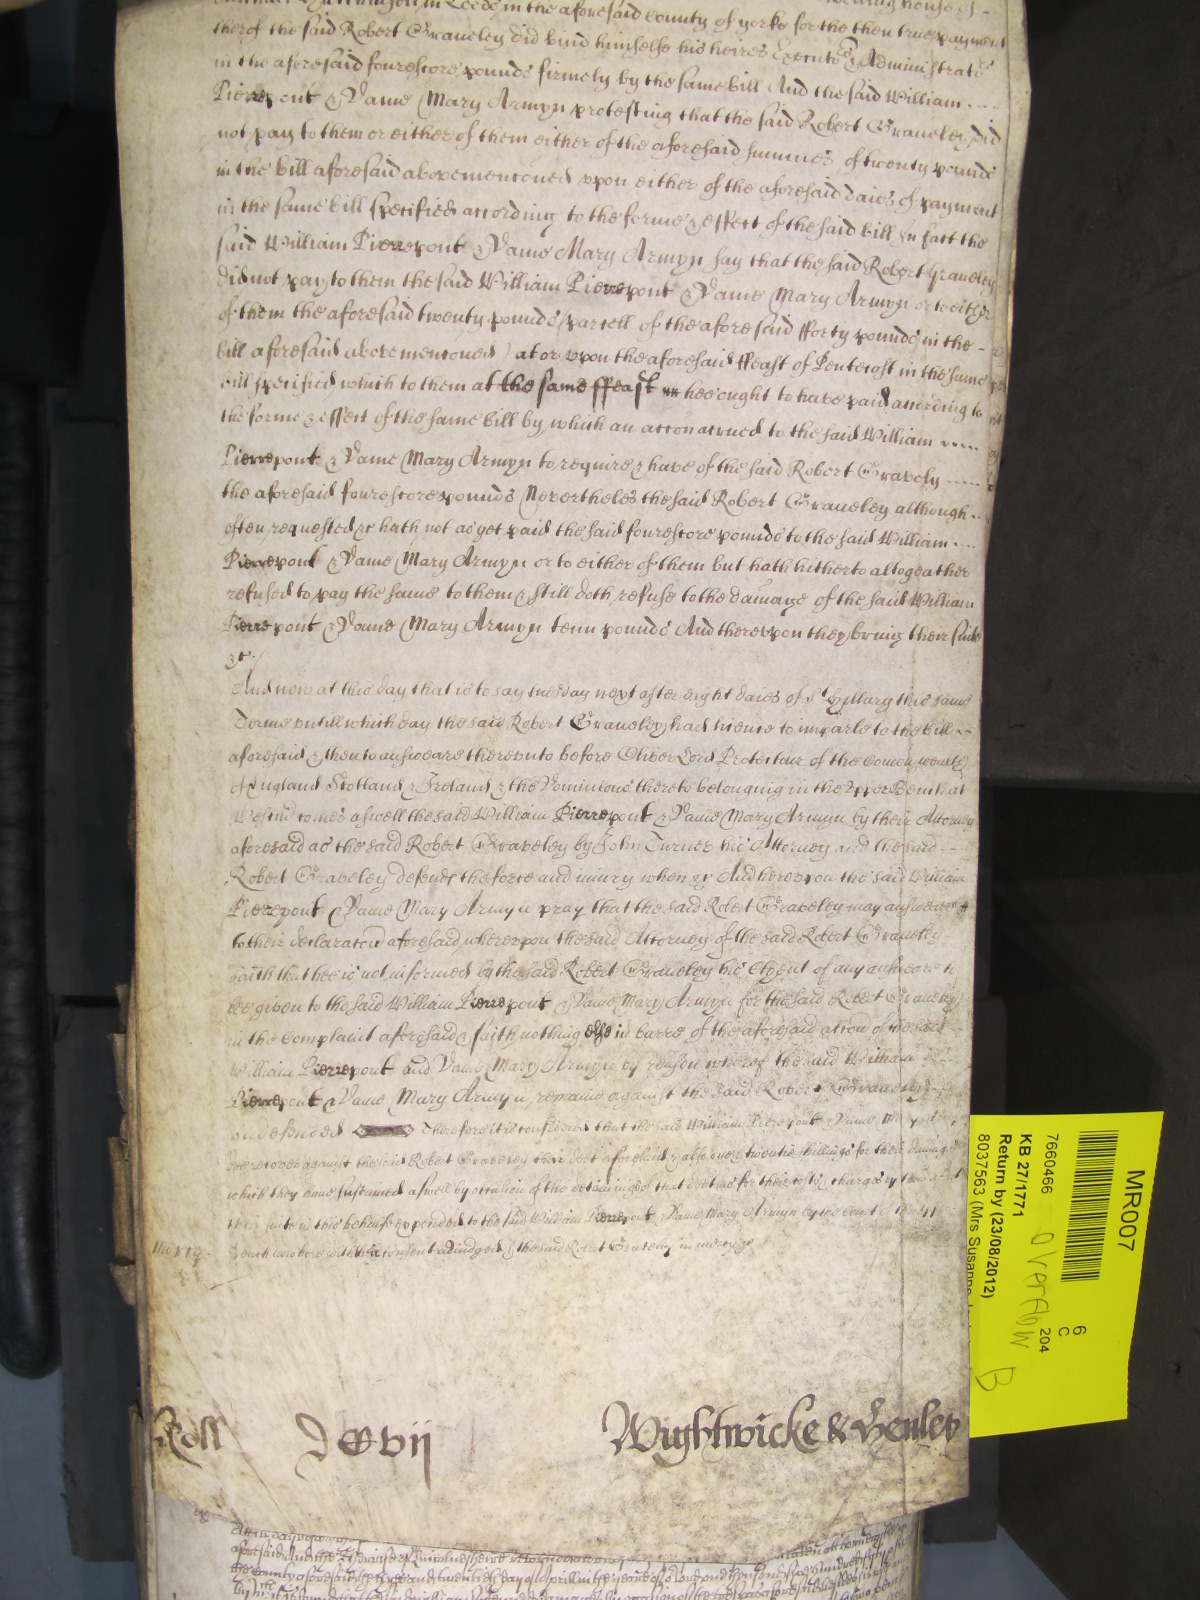 in Leeds in the aforesaid county of yorke for the then true payment
therof the said Robert Graveley did bind himselfe his heires Executors & Administrators
in the aforesaid fourescore pounds firmely by the same bill And the said William
Pierrepont & Dame Mary Armyn protesting that the said Robert Graveley did
not pay to them or either of them either of the aforesaid summes of twenty pounds
in the bill aforesaid abovementioned vpon either of the aforesaid daies of payment
in the same bill specified according to the forme & effect of the said bill In fact the
said William Pierrepont & Dame Mary Armyn say that the said Robert Graveley
did not pay to them the said William Pierrepont & Dame Mary Armyn or to either
of them the aforesaid twenty pounds (parcell of the aforesaid fforty pounds in the
bill aforesaid abovementioned) at or vpon the aforesaid ffeast of Pentecost in the same
bill specified which to them at the same ffeast hee ought to have paid according to
the forme & effect of the same bill by which an accon accrued to the said William
Pierrepont & Dame Mary Armyn to require & have of the said Robert Gravely
the aforesaid fourescore pounds Neverthelesse the said Robert Graveley although
often requested &c hath not as yet paid the said fourescore pounds to the said William
Pierrepont & Dame Mary Armyn or to either of them but hath hitherto altogeather
refused to pay the same to them & still doth refuse to the damage of the said William
Pierrepont & Dame Mary Armyn tenn pounds And therevpon they bring their suite
&c
And now at this day that is to say tuesday next after eight daies of St Hillary this same
Terme vntill which day the said Robert Graveley had licence to imparle to the bill
aforesaid & then to answeare therevnto before Oliver Lord Protectour of the Comonwealth
of England Scotland & Ireland & the Dominions thereto belonging in the Vpper Bench at
Westm comes aswell the said William Pierrepont & Dame Mary Armyn by their Attorney
aforesaid as the said Robert Graveley by John Turner his Attorney and the said
Robert Graveley defends the force and iniury when &c And herevpon the said William
Pierrepont & Dame Mary Armyn pray that the said Robert Graveley may answeare
to their declaracon aforesaid wherevpon the said Attorney of the said Robert Graveley
saith that hee is not informed by the said Robert Graveley his Clyent of any answeare to
bee given to the said William Pierrepont & Dame Mary Armyn for the said Robert Graveley
in the Complaint aforesaid & saith nothing else in barre of the aforesaid accon of the said
William Pierrepont and Dame Mary Armyn by reason wherof the said William
Pierrepont & Dame Mary Armyn remaine against the said Robert Graveley
vndefended Therefore it is considered that the said William Pierrepont & Dame Mary
recover against the said Robert Graveley their debt aforesaid & also twentie shillings for their damages
which they have sustained aswell by occasion of the detaining of that debt as for their costs & charges by them
their suite in this behalfe expended to the said William Pierrepont & Dame Mary Armyn by the Court
with their consent adiudged & the said Robert Graveley in mercy &c
Roll
Wightwicke & Henley
MR007
6
C
204
7660466
Overflow
KB 27/1771
Return by (23/08/2012)
B
8037563 (Mrs Susanne